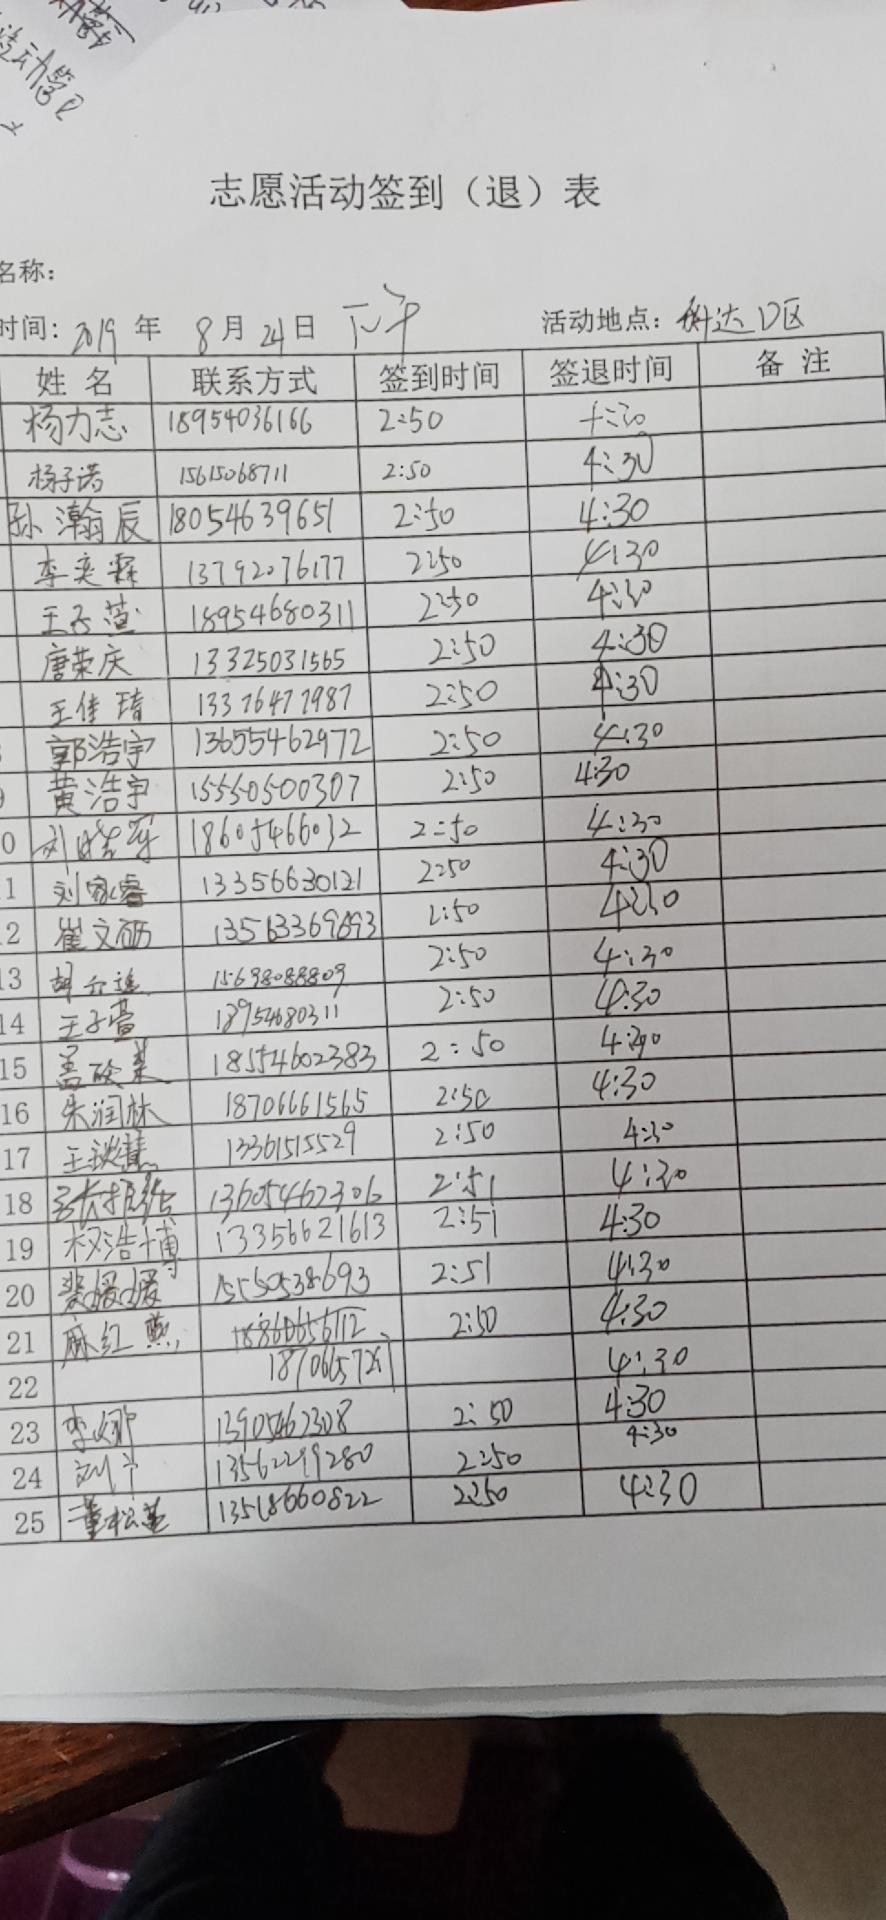 志愿活动签到（退）表
名称：
时间：2019 年 8 月 24 日 下午 活动地点：科达D区
姓 名 联系方式 签到时间 签退时间 备 注
杨力志 18954036166 2:50 4:30
杨子诺 15615068711 2:50 4:30
孙瀚辰 18054639651 2:50 4:30
李奕霖 13792076177 2:50 4:30
王子萱 18954680311 2:50 4:30
唐荣庆 13325031565 2:50 4:30
王佳琦 13376477987 2:50 4:30
郭浩宇 13655462972 2:50 4:30
黄浩宇 15550500307 2:50 4:30
0 18605466032 2:50 4:30
11 刘家睿 13356630121 2:50 4:30
12 崔文硕 13563369893 2:50 4:30
13 15698088809 2:50 4:30
14 王子萱 18954680311 2:50 4:30
15 18554602383 2:50 4:30
16 朱润林 18706661565 2:50 4:30
17 13361515529 2:50 4:30
18 13605462306 2:51 4:30
19 杨浩博 13356621613 2:51 4:30
20 裴媛媛 15550538693 2:51 4:30
21 麻红燕 18860656112 2:50 4:30
22 18706657261 4:30
23 李娜 13905462308 2:50 4:30
24 刘宁 13562299280 2:50 4:30
25 董松莲 13518660822 2:50 4:30